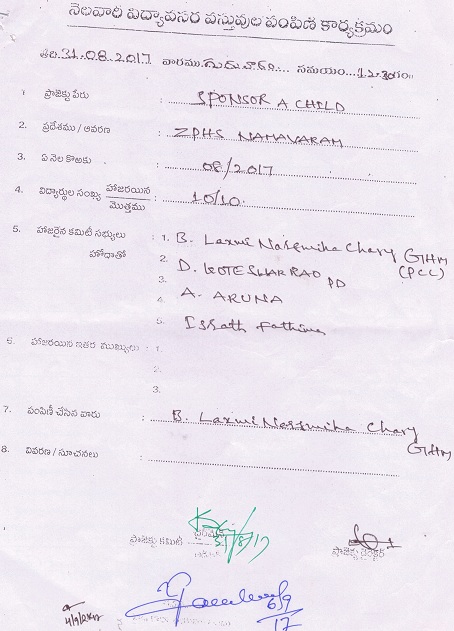 నెలవారి విద్యావసర వస్తువుల పంపిణి కార్యక్రమం
తేది 31.08.2017 వారము గురువారం సమయం 12.30
1. ప్రాజెక్టు పేరు : SPONSOR A CHILD
2. ప్రదేశము / ఆవరణ : ZPHS NAMAVARAM
3. ఏ నెల కొఱకు : 08/2017
4. విద్యార్థుల సంఖ్య హాజరయిన / మొత్తము : 10/10
5. హాజరైన కమిటీ సభ్యులు : 1. B. Laxmi Narsimha Chary GHM
హోదాతో 2. D. KOTESHWAR RAO PD (PCC)
3. A. ARUNA
4.
5. Israth Fathima
6. హాజరయిన ఇతర ముఖ్యులు : 1.
2.
3.
7. పంపిణీ చేసిన వారు : B. Laxmi Narsimha Chary GHM
8. వివరణ / సూచనలు :
31/8/17
ప్రాజెక్టు కమిటీ ప్రాజెక్టు డైరెక్టర్
6/9
17